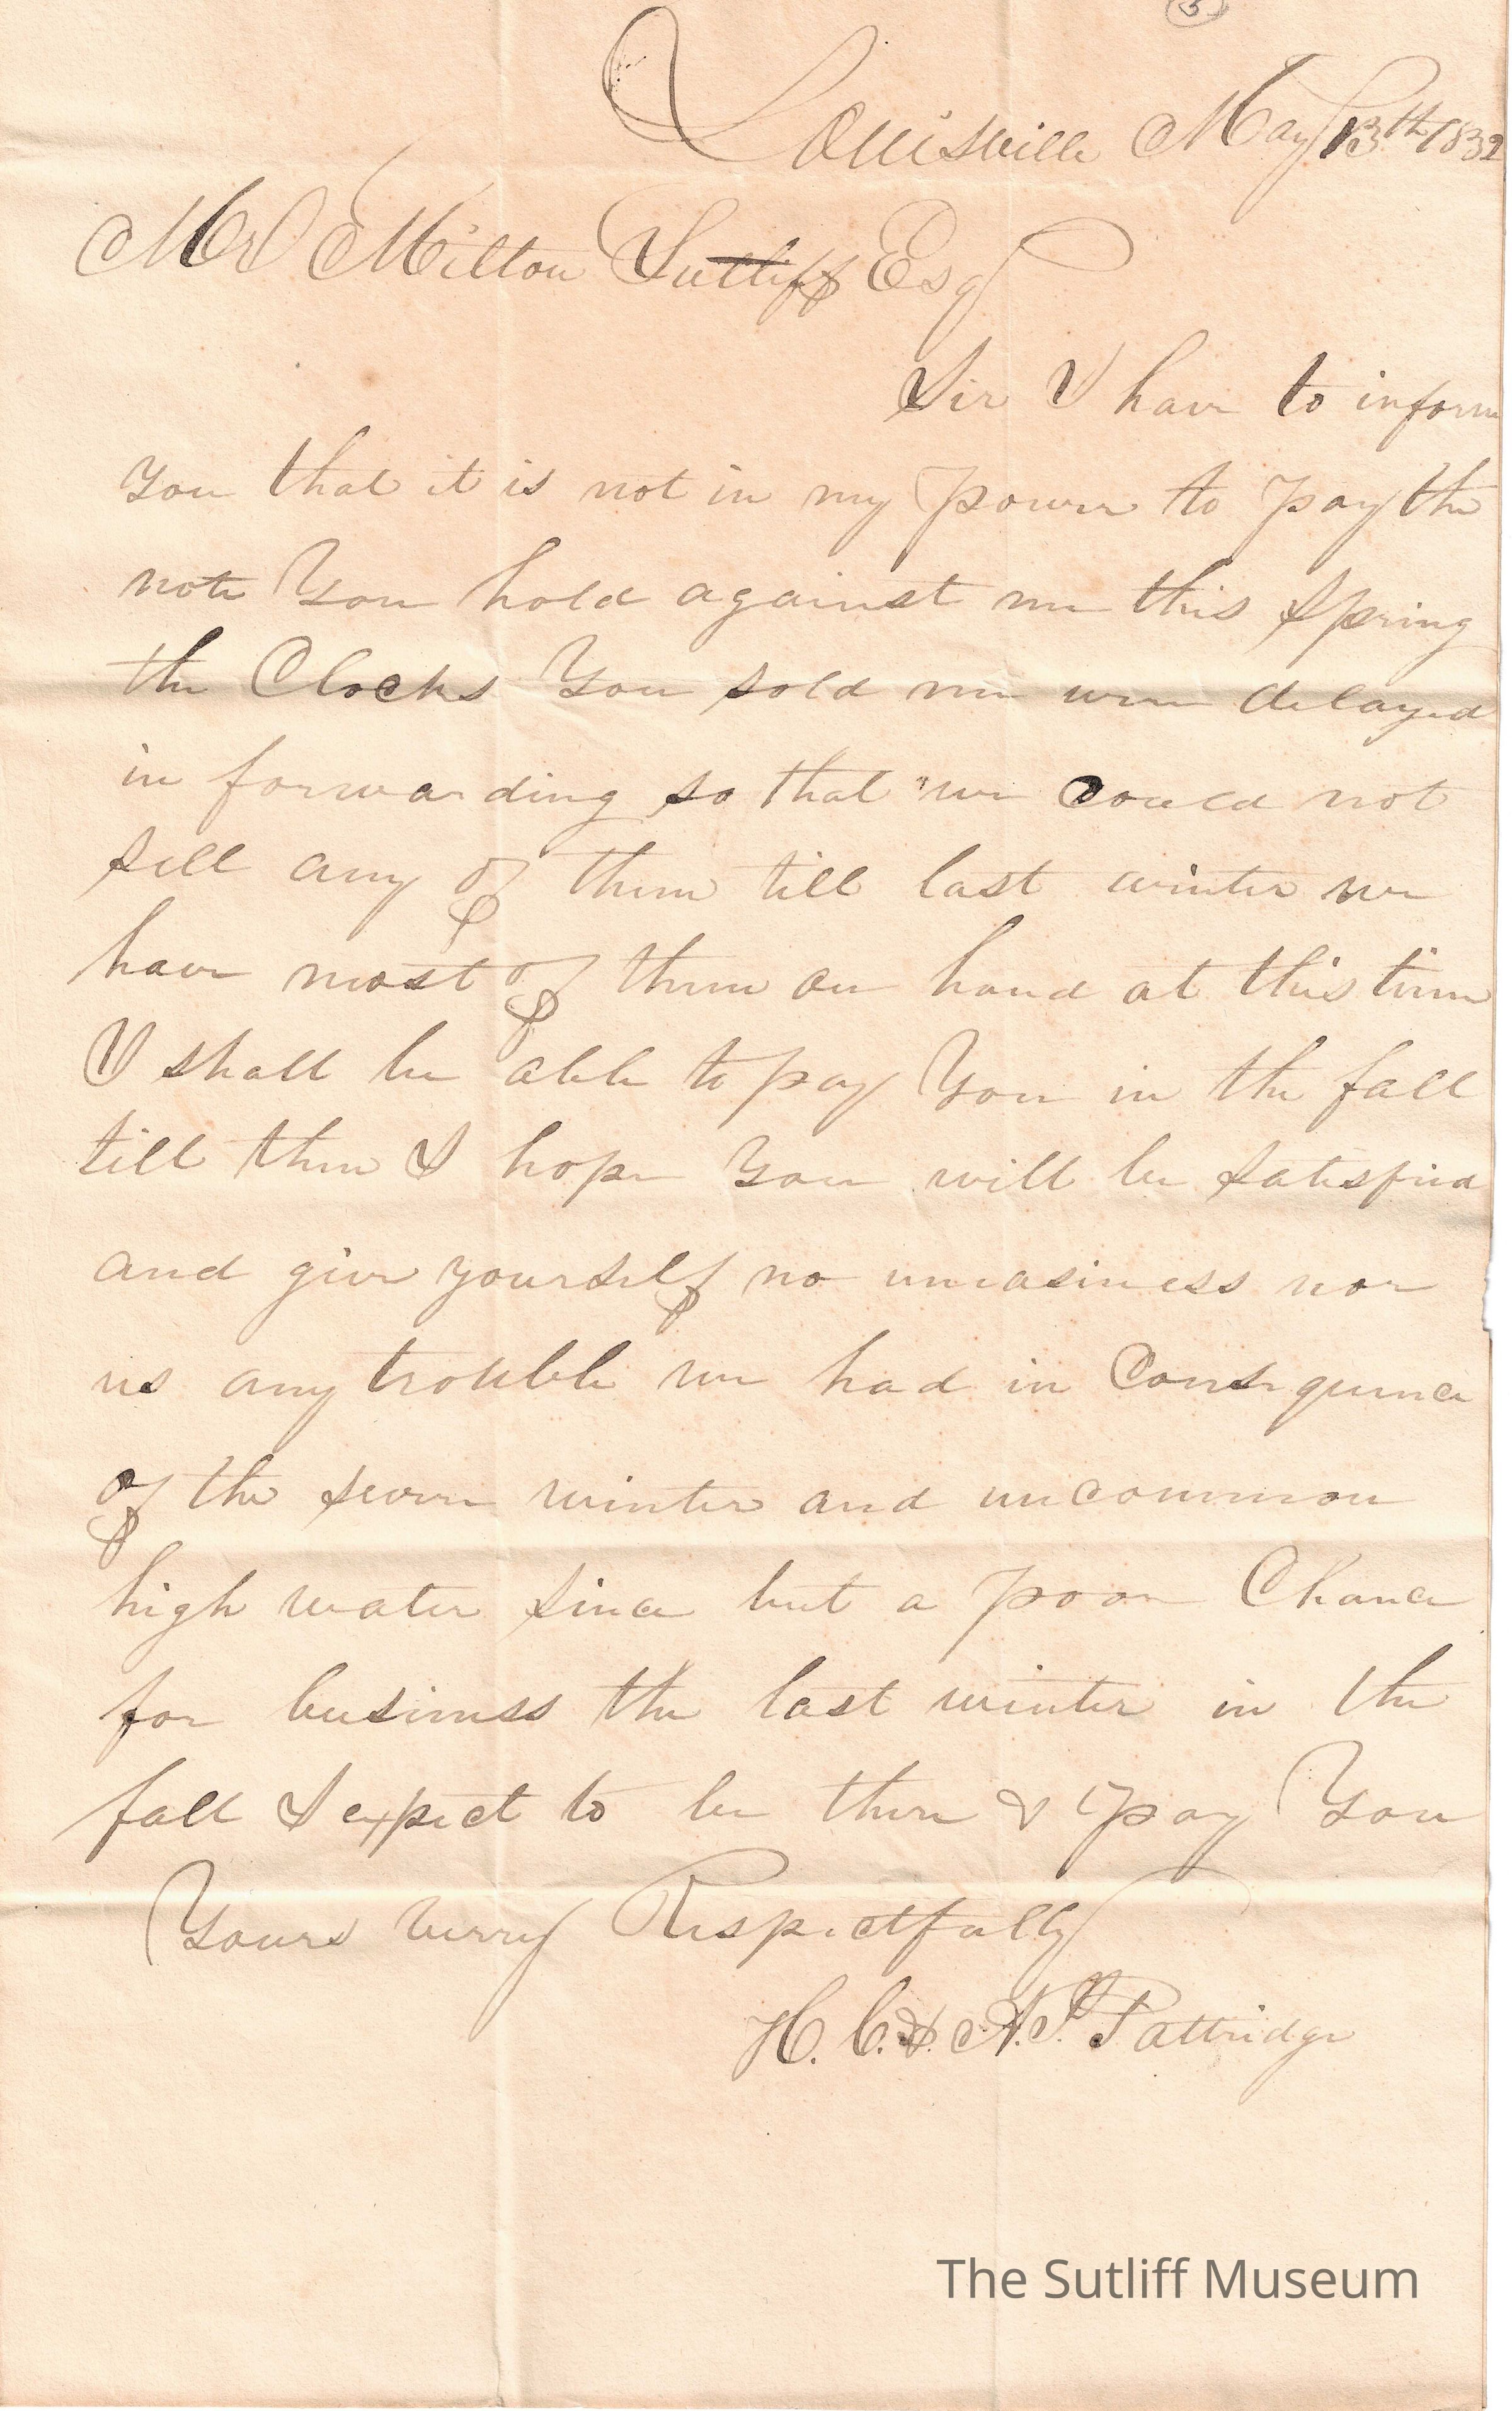 5
Louisville May 13th 1832
Mr Milton Sutliff Esq
Sir I have to inform
you that it is not in my power to pay the
note You hold against me this Spring
the Clocks You sold me were delayed
in forwarding so that we could not
sell any of them till last winter we
have most of them on hand at this time
I shall be able to pay You in the fall
till then I hope You will be satisfied
and give yourself no uneasiness nor
us any trouble we had in Consequence
of the severe winter and uncommon
high water since but a poor Chance
for business the last winter in the
fall I expect to be there & pay You
Yours verry Respectfully
H. C. & A. P. Pattridge
The Sutliff Museum